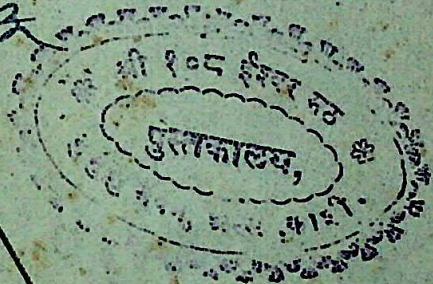 श्री १०८ ईश्वर मठ
पुस्तकालय,
काशी.